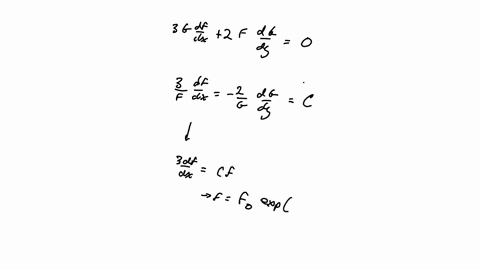 3G dF/dx + 2 F dG/dy = 0
3/F dF/dx = -2/G dG/dy = C
↓
3dF/dx = CF
→ F = F₀ exp(